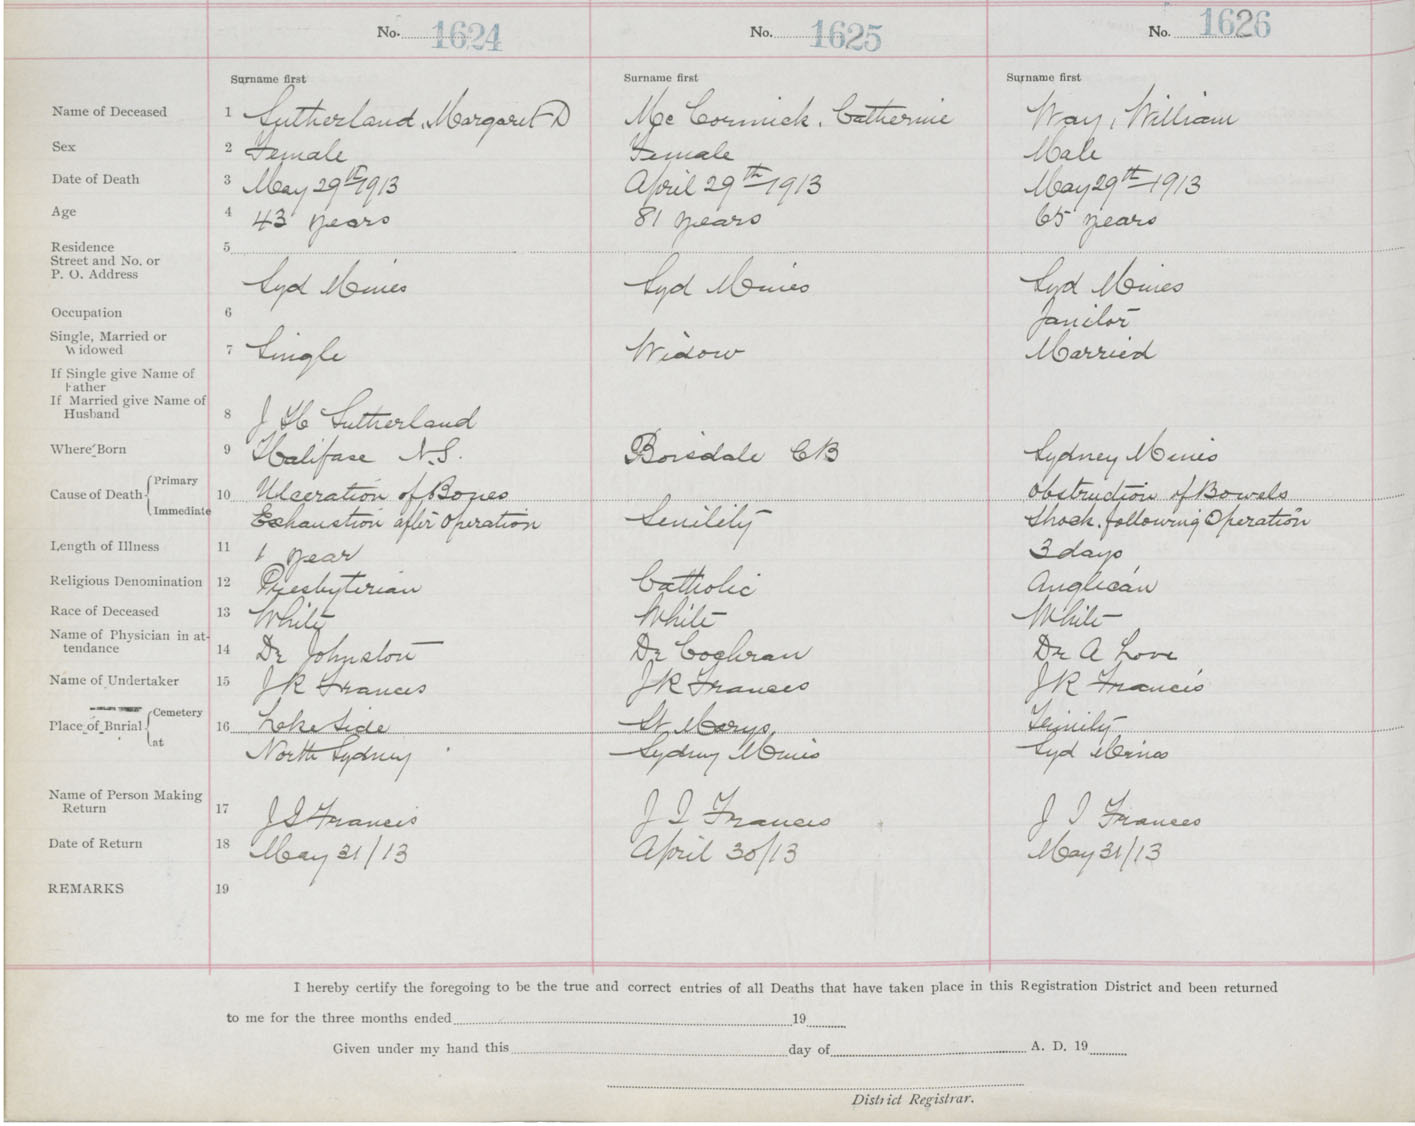 No. 1624 No. 1625 No. 1626
Surname first Surname first Surname first
Name of Deceased 1 Sutherland, Margaret D Mc Cormick, Catherine Way, William
Sex 2 Female Female Male
Date of Death 3 May 29th 1913 April 29th 1913 May 29th 1913
Age 4 43 years 81 years 65 years
Residence 5
Street and No. or
P. O. Address Syd Mines Syd Mines Syd Mines
Occupation 6 Janitor
Single, Married or
Widowed 7 Single Widow Married
If Single give Name of
Father
If Married give Name of
Husband 8 J H Sutherland
Where Born 9 Halifax N.S. Boisdale CB Sydney Mines
Cause of Death Primary 10 Ulceration of Bones Obstruction of Bowels
Immediate Exhaustion after Operation Senility Shock following Operation
Length of Illness 11 1 year 3 days
Religious Denomination 12 Presbyterian Catholic Anglican
Race of Deceased 13 White White White
Name of Physician in at-
tendance 14 Dr Johnston Dr Cochran Dr A Love
Name of Undertaker 15 J R Francis J R Francis J R Francis
Place of Burial Cemetery 16 Lake Side St Marys, Trinity
at North Sydney Sydney Mines Syd Mines
Name of Person Making
Return 17 J I Francis J I Francis J I Francis
Date of Return 18 May 31/13 April 30/13 May 31/13
REMARKS 19
I hereby certify the foregoing to be the true and correct entries of all Deaths that have taken place in this Registration District and been returned
to me for the three months ended 19
Given under my hand this day of A. D. 19
District Registrar.